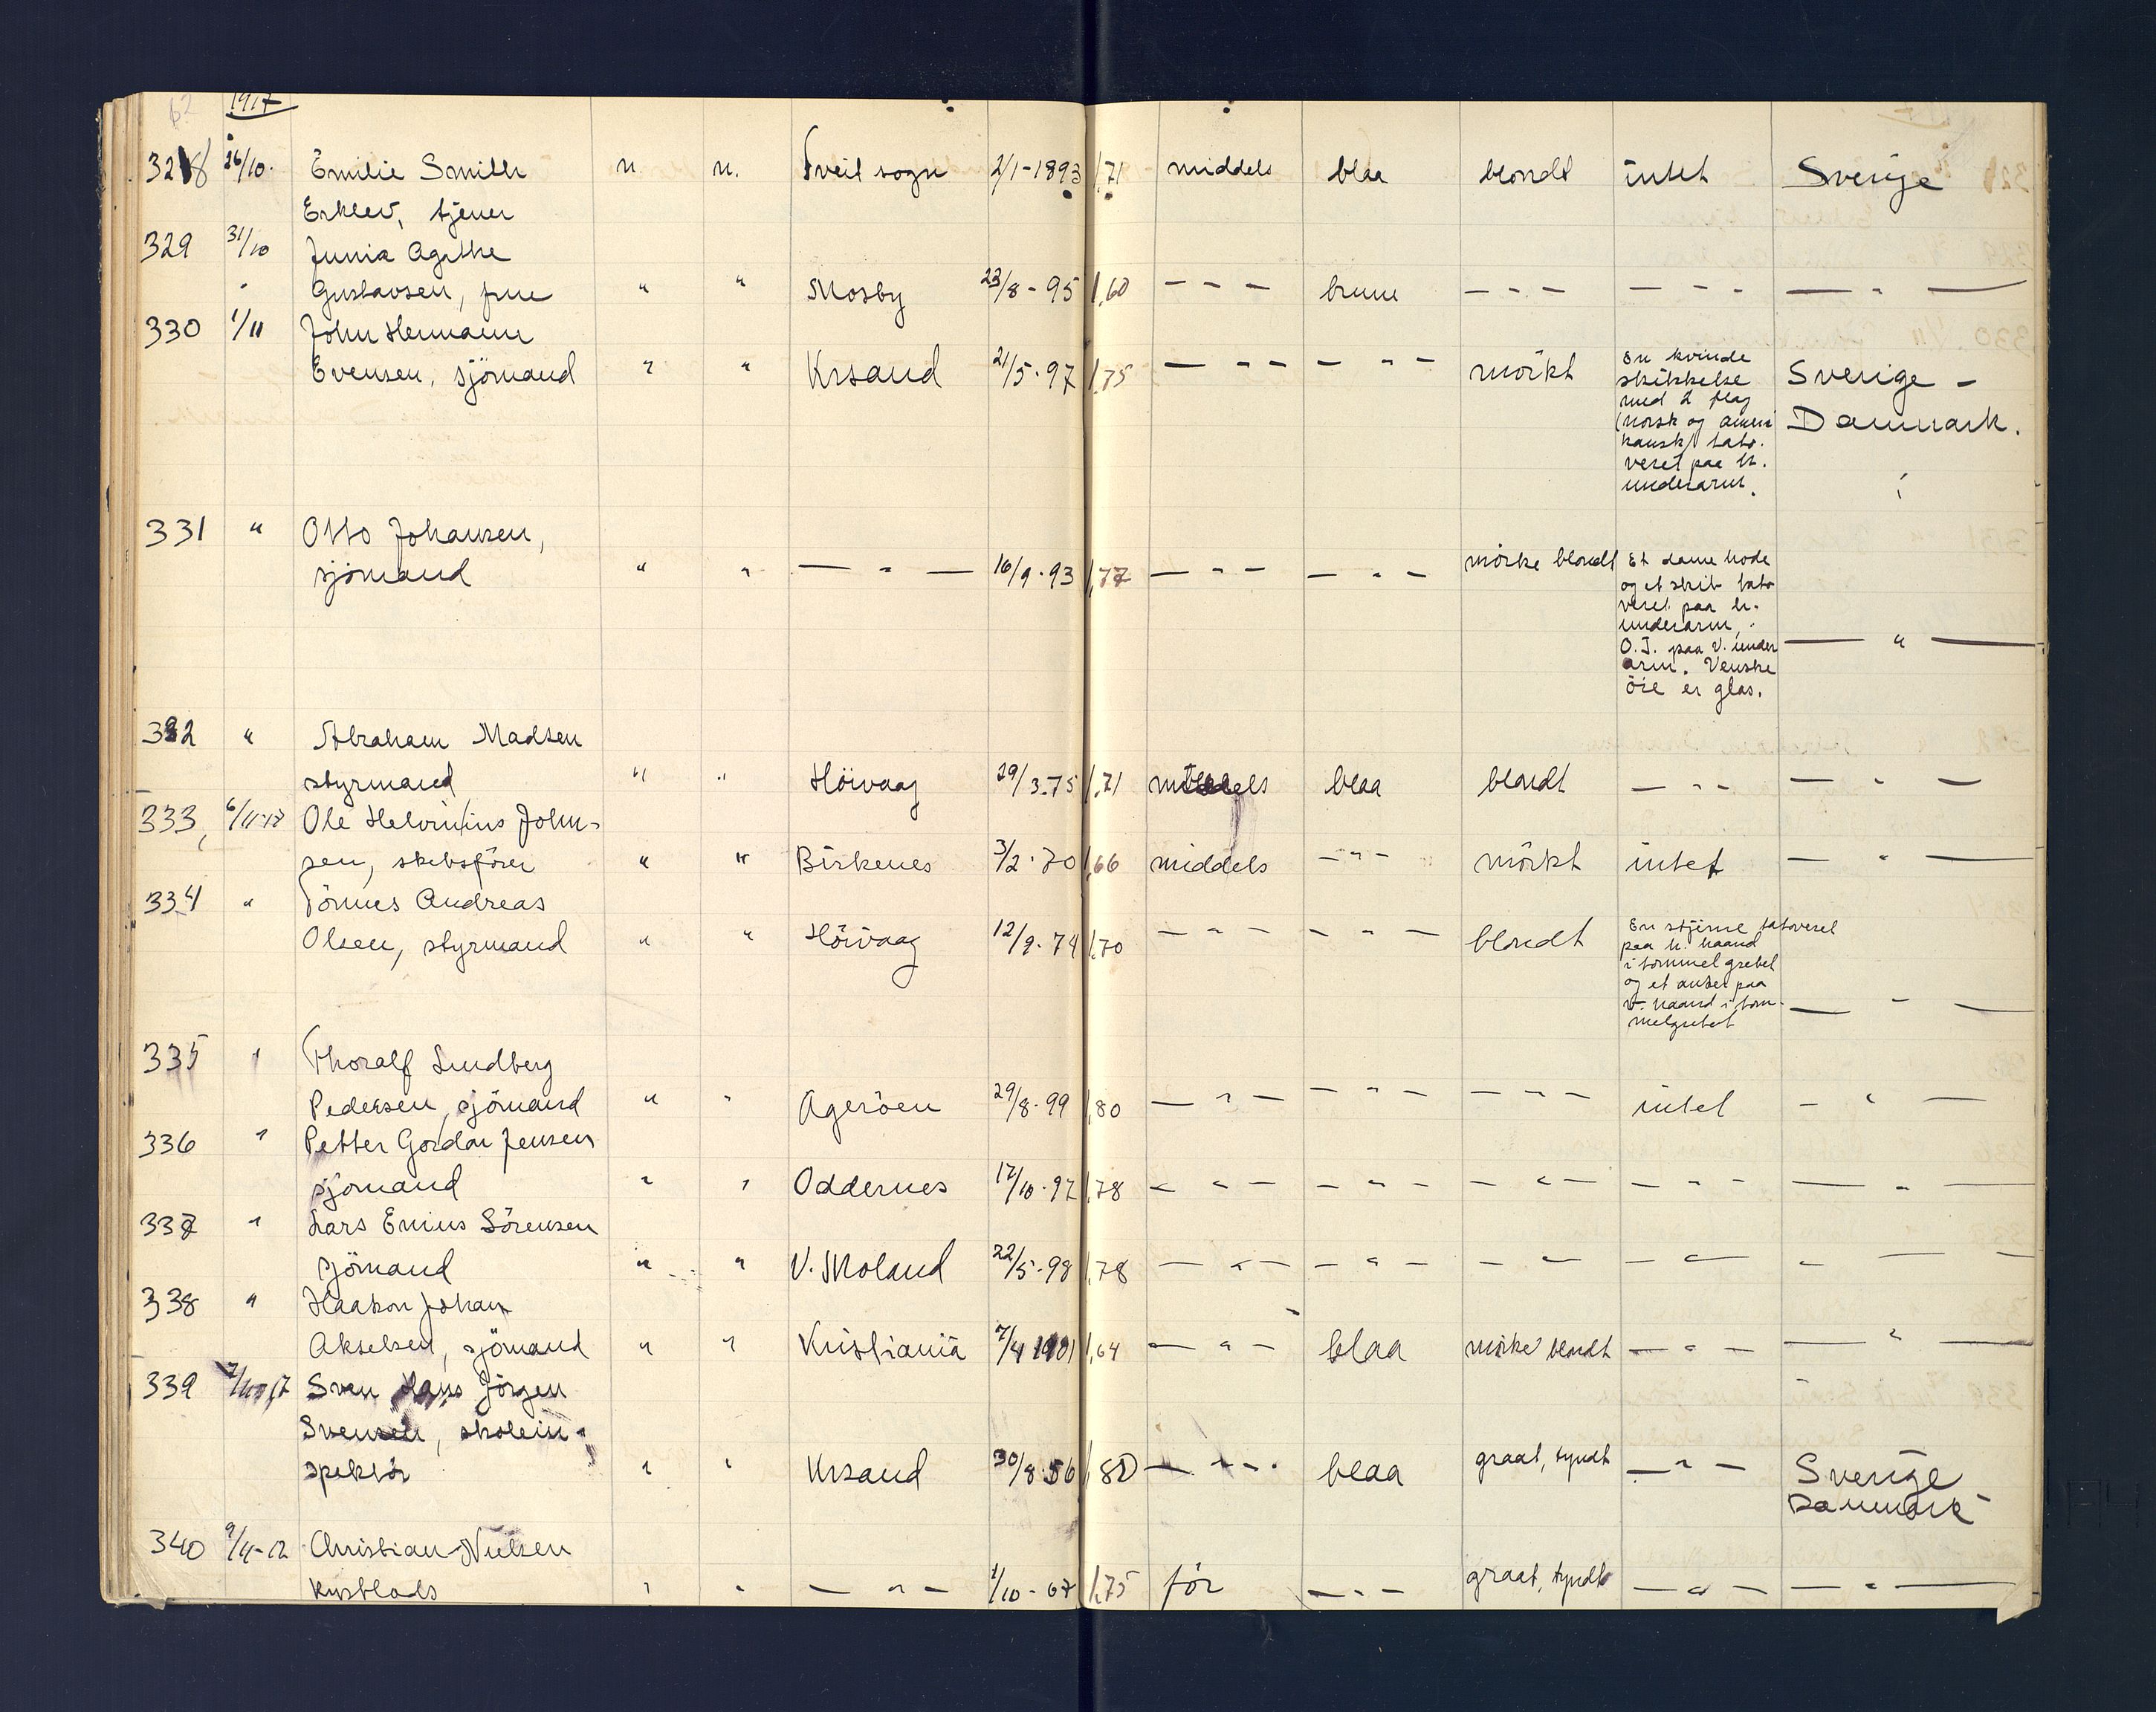 62 1917
328 26/10. Emilie Smith n. n. Tveit sogn 2/1-1893 1,71 middels blaa blondt intet Sverige
Erklev, tjener
329 31/10 Junia Agathe
Gustavsen, frue " " Mosby 23/8-95 1,60 - - - brune - - - - - - — " —
330 1/11 John Hermann
Evensen, sjömand " " Krsand 21/5-97 1,75 — " — — " — mörkt En kvinde
skikkelse Sverige -
med 2 flag
(norsk og ameri Danmark.
kansk) tato-
veret paa h.
underarm.
331 " Otto Johansen,
sjömand " " — " — 16/9-93 1,77 — " — — " — mörke blondt Et dame hode
og et skib tato
veret paa h.
underarm,
O.J. paa v. under — " —
arm. Venstre
öie er glas.
332 " Abraham Madsen
styrmand " " Höivaag 29/3-75 1,71 middels blaa blondt — " — — " —
333, 6/11-17 Ole Helvinius John-
sen, skibsförer " " Birkenes 3/2-70 1,66 middels — " — mörkt intet — " —
334 " Tönnes Andreas
Olsen, styrmand " " Höivaag 12/9-74 1,70 — " — — " — blondt En stjerne tatoveret
paa h. haand
i tommelgrebet
og et anker paa
v. haand i tom- — " —
melgrebet
335 " Thoralf Lindberg
Pedersen, sjömand " " Ageröen 29/8-99 1,80 — " — — " — — " — intet — " —
336 " Petter Gordon Jensen
sjömand " " Oddernes 17/10-97 1,78 — " — — " — — " — — " — — " —
337 " Lars Enius Sörensen
sjömand " " V. Moland 22/5-98 1,78 — " — — " — — " — — " — — " —
338 " Haakon Johan
Akselsen, sjömand " " Kristiania 7/4 1901 1,64 — " — blaa mörke blondt — " — — " —
339 7/11-17 Sven Hans Jörgen
Svensen, skolein-
spektör " " Krsand 30/8 56 1,80 — " — blaa graat, tyndt — " — Sverige
Danmark
340 9/11-17 Christian Nielsen
" " — " — 1/10-67 1,75 för — " — graat, tyndt — " — — " —